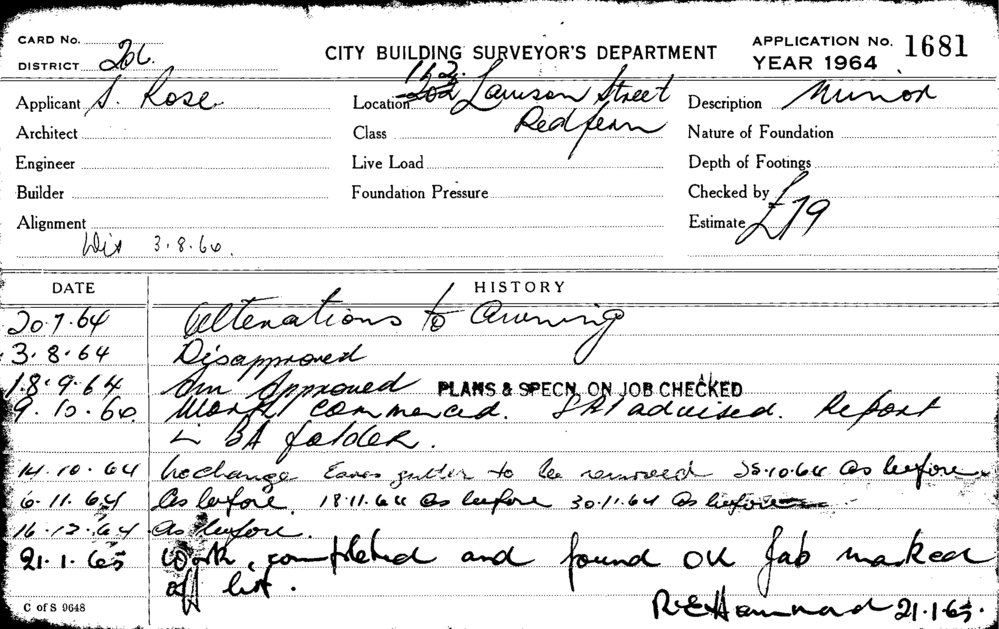 CARD No.
DISTRICT 26.
CITY BUILDING SURVEYOR'S DEPARTMENT
APPLICATION No. 1681
YEAR 1964
Applicant S. Rose
Location 202 162. Lawson Street
Redfern
Description Minor
Architect
Class
Nature of Foundation
Engineer
Live Load
Depth of Footings
Builder
Foundation Pressure
Checked by
Alignment
Estimate £79
Dis 3.8.64.
DATE HISTORY
20.7.64 Alterations to Awning
3.8.64 Disapproved
18.9.64 Approved PLANS & SPECN. ON JOB CHECKED
9.10.64 Work commenced. advised. Report
in BA folder.
14.10.64 No change Eaves gutter to be removed 28.10.64 As before
6.11.64 As before. 18.11.64 As before 30.11.64 As before
16.12.64 As before.
21.1.65 Work completed and found OK Job marked
off list.
C of S 9648
R.E. Hammond 21.1.65.